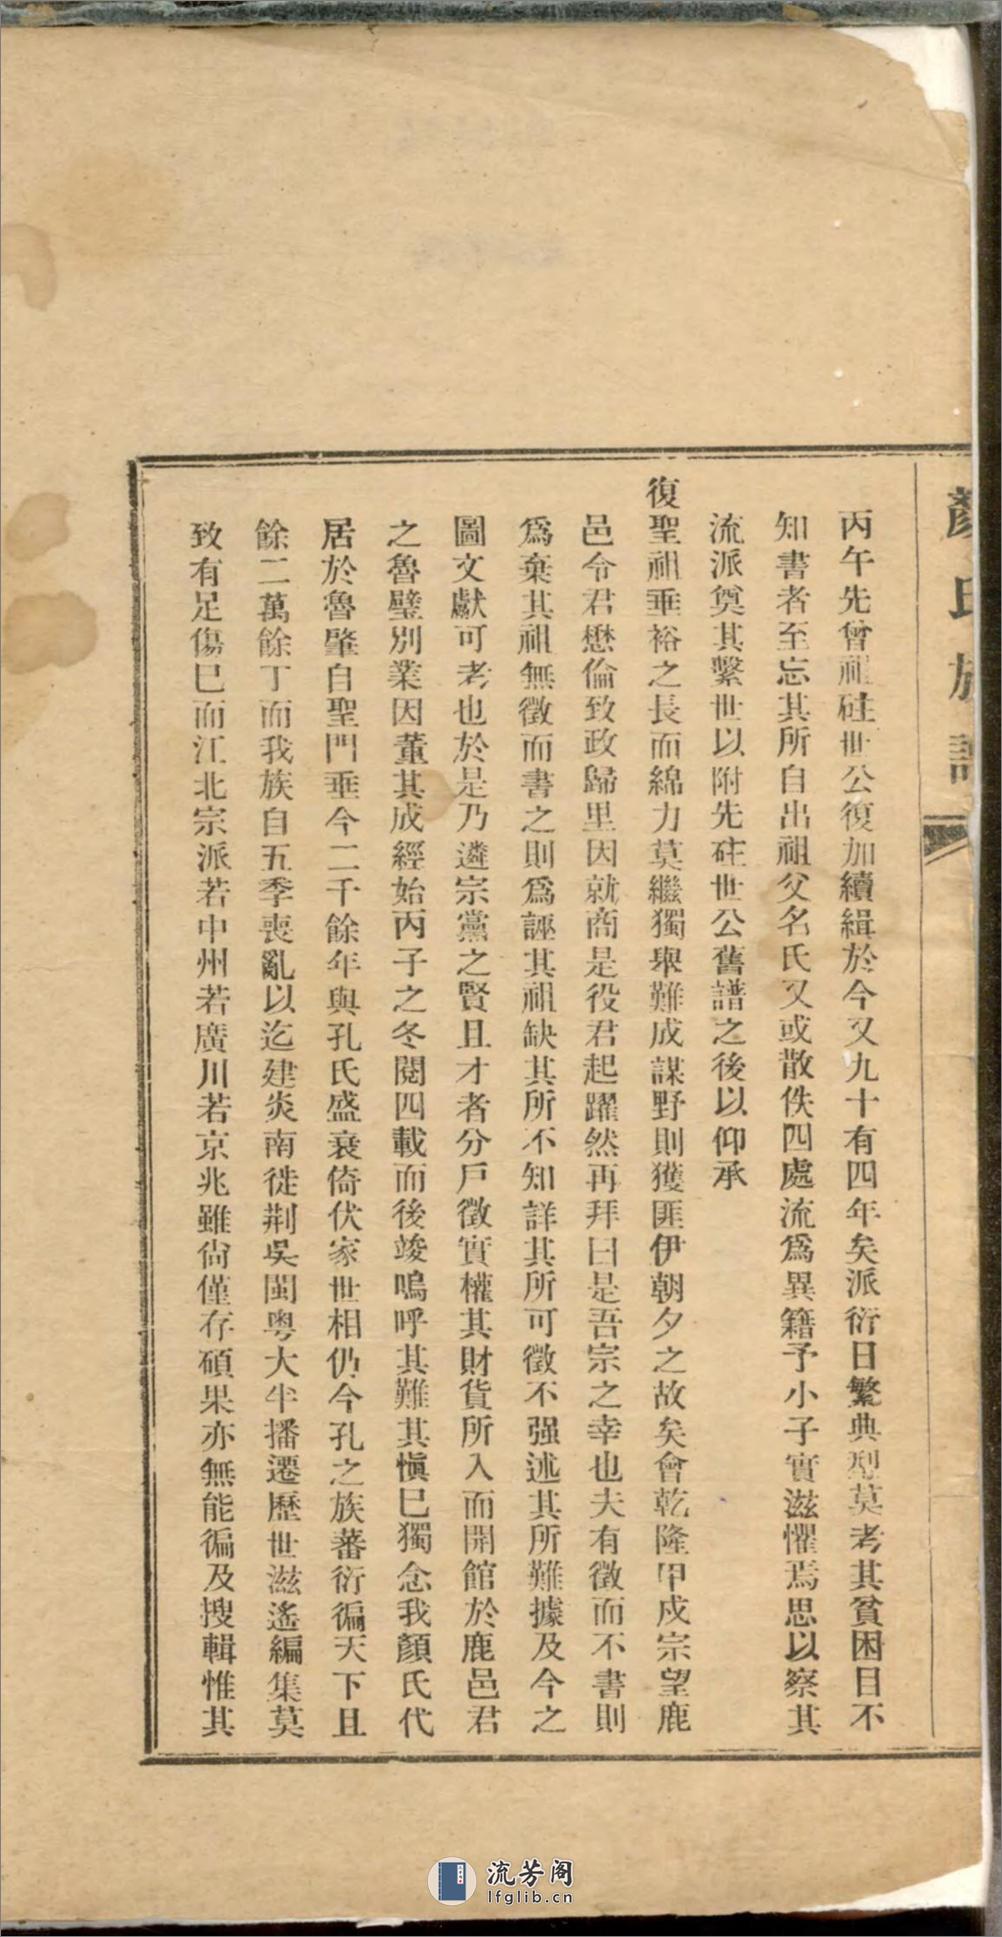 顏氏族譜
丙午先曾祖硅世公復加續緝於今又九十有四年矣派衍日繁典型莫考其貧困目不
知書者至忘其所自出祖父名氏又或散佚四處流爲異籍予小子實滋懼焉思以察其
流派奠其繫世以附先硅世公舊譜之後以仰承
復聖祖垂裕之長而綿力莫繼獨舉難成謀野則獲匪伊朝夕之故矣會乾隆甲戍宗望鹿
邑令君懋倫致政歸里因就商是役君起躍然再拜曰是吾宗之幸也夫有徵而不書則
爲棄其祖無徵而書之則爲誣其祖缺其所不知詳其所可徵不强述其所難據及今之
圖文獻可考也於是乃遴宗黨之賢且才者分戶徵實權其財貨所入而開館於鹿邑君
之魯璧別業因董其成經始丙子之冬閱四載而後竣嗚呼其難其愼巳獨念我顏氏代
居於魯肇自聖門垂今二千餘年與孔氏盛衰倚伏家世相仍今孔之族蕃衍徧天下且
餘二萬餘丁而我族自五季喪亂以迄建炎南徙荆吳閩粵大半播遷歷世滋遙編集莫
致有足傷巳而江北宗派若中州若廣川若京兆雖尙僅存碩果亦無能徧及搜輯惟其
流芳阁
lfglib.cn